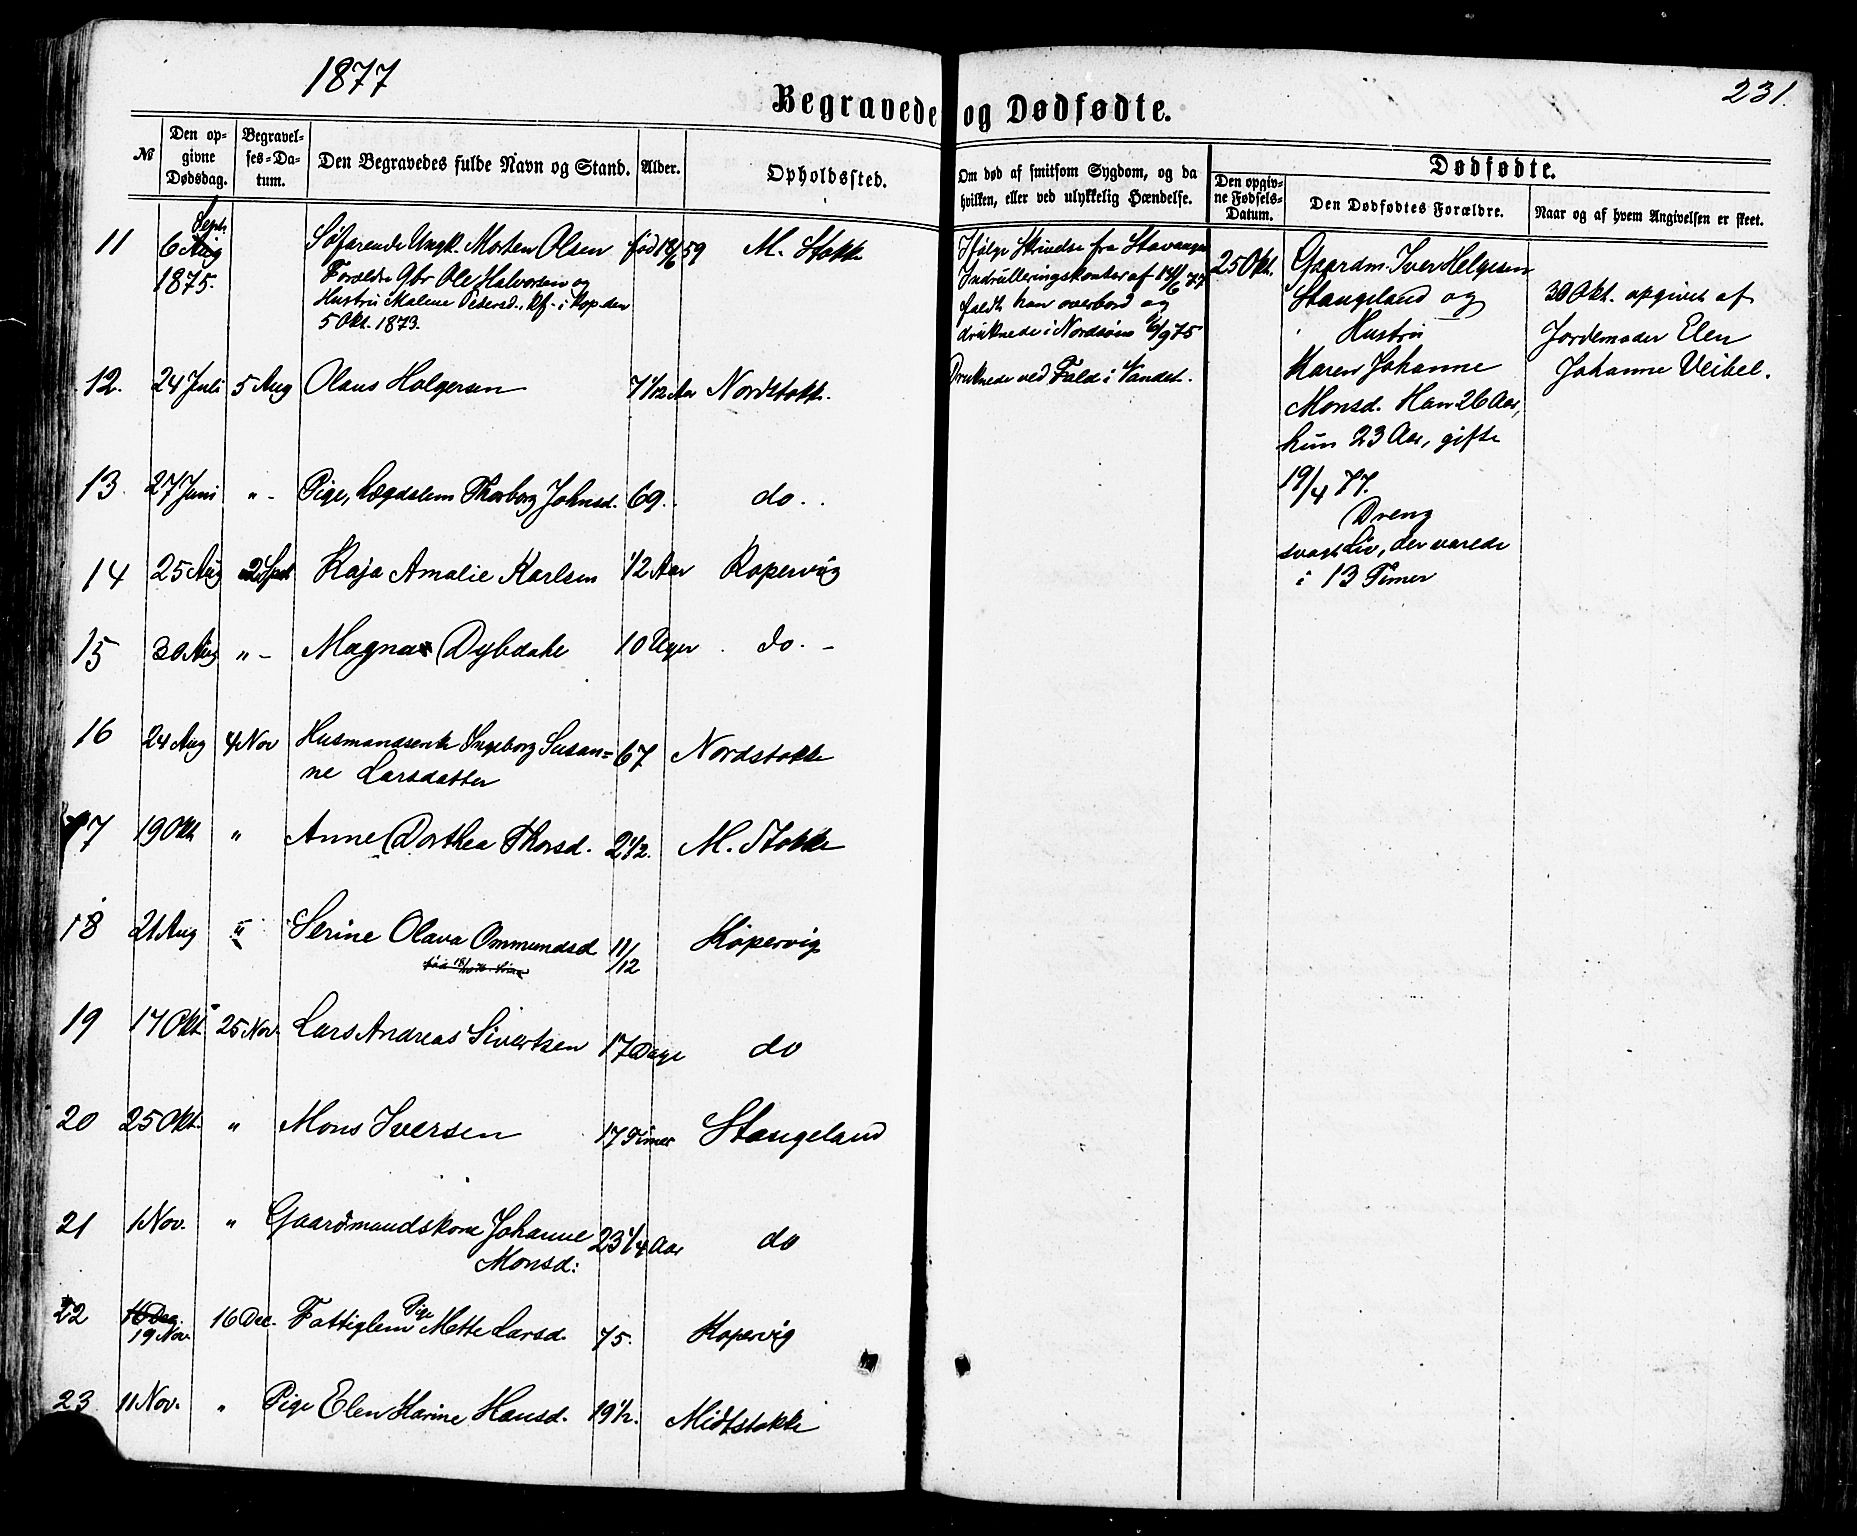 1877
231.
Begravede og Dødfødte.
№
Den op-
givne
Dødsdag.
Begravel-
ses-Da-
tum.
Den Begravedes fulde Navn og Stand.
Alder.
Opholdssted.
Om død af smitsom Sygdom, og da
hvilken, eller ved ulykkelig Hændelse.
Dødfødte.
Den opgiv-
ne Fødsels-
Datum.
Den Dødfødtes Forældre.
Naar og af hvem Angivelsen er skeet.
11 6 Aug Sept. 1875. Søfarende Ungk. Morten Olsen fød 18/6 59 M. Stokke
Forældre Gbr Ole Halvorsen og
Hustru Malene Pedersd., kf. i Kop. den
5 Okt. 1873.
Ifølge Skrivelse fra Stavanger
Indrulleringskontor af
faldt han overbord og
druknede i Nordsøen 6/9 75
12. 24 Juli 5 Aug Olaus Holgersen 7 1/12 Aar Nordstokk. Druknede ved Fald i Vandet.
13. 27 Juni " - Pige, Lægdslem Thorborg Johnsd. 69. do.
14 25 Aug 2 Sept Kaja Amalie Karlsen 1/2 Aar Kopervig
15 30 Aug " - Magna Dybdahl 10 Uger do. -
16 24 Aug 4 Nov Husmandsenk Ingeborg Susan= 67 Nordstokke
ne Larsdatter
17 19 Okt " Anne Dorthea Thorsd. 2 1/2. M. Stokke
18 21 Aug " Serine Olava Ommundsd 11/12 Kopervig
19 17 Okt 25 Nov. Lars Andreas Sivertsen 17 Dage do
20 25 Okt. " Mons Iversen 17 Timer Stangeland
21 1 Nov. " Gaardmandskone Johanne 23 1/4 Aar do
Monsd:
22 16 Dec. 19 Nov. 16 Dec. Fattiglem Pige Mette Larsd. 75. Kopervig
23 11 Nov. " Pige Elen Karine Hansd. 19 1/2. Midtstokke
25 Okt.
Gaardm. Iver Helgesen
Stangeland og
Hustru
Karen Johanne
Monsd. Han 26 Aar,
hun 23 Aar, gifte
19/4 77.
Dreng
svagt Liv, der varede
i 13 Timer
30 Okt. opgivet af
Jordemoder Elen
Johanne Veibel.